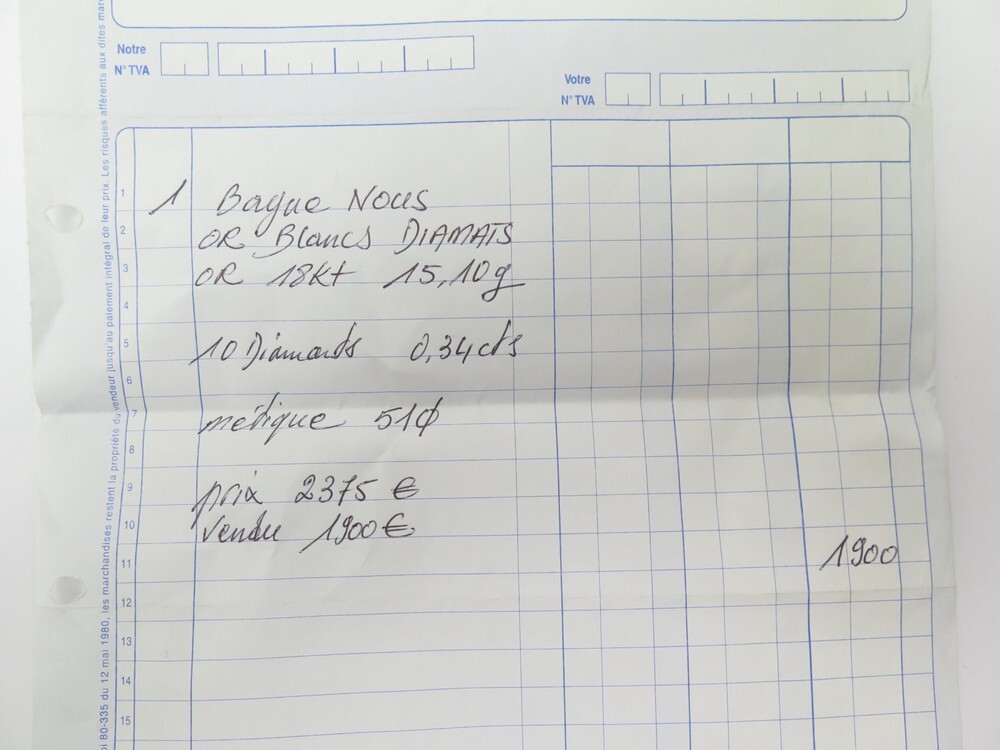 Notre
N° TVA
Votre
N° TVA
1 1 Bague Nous
2 OR Blancs DIAMATS
3 OR 18Kt 15,10g
4
5 10 Diamants 0,34 cts
6
7 métique 51ϕ
8
9 prix 2375 €
10 Vendu 1900 €
11 1900
12
13
14
15
80-335 du 12 mai 1980, les marchandises restent la propriété du vendeur jusqu'au paiement intégral de leur prix. Les risques afférents aux dites